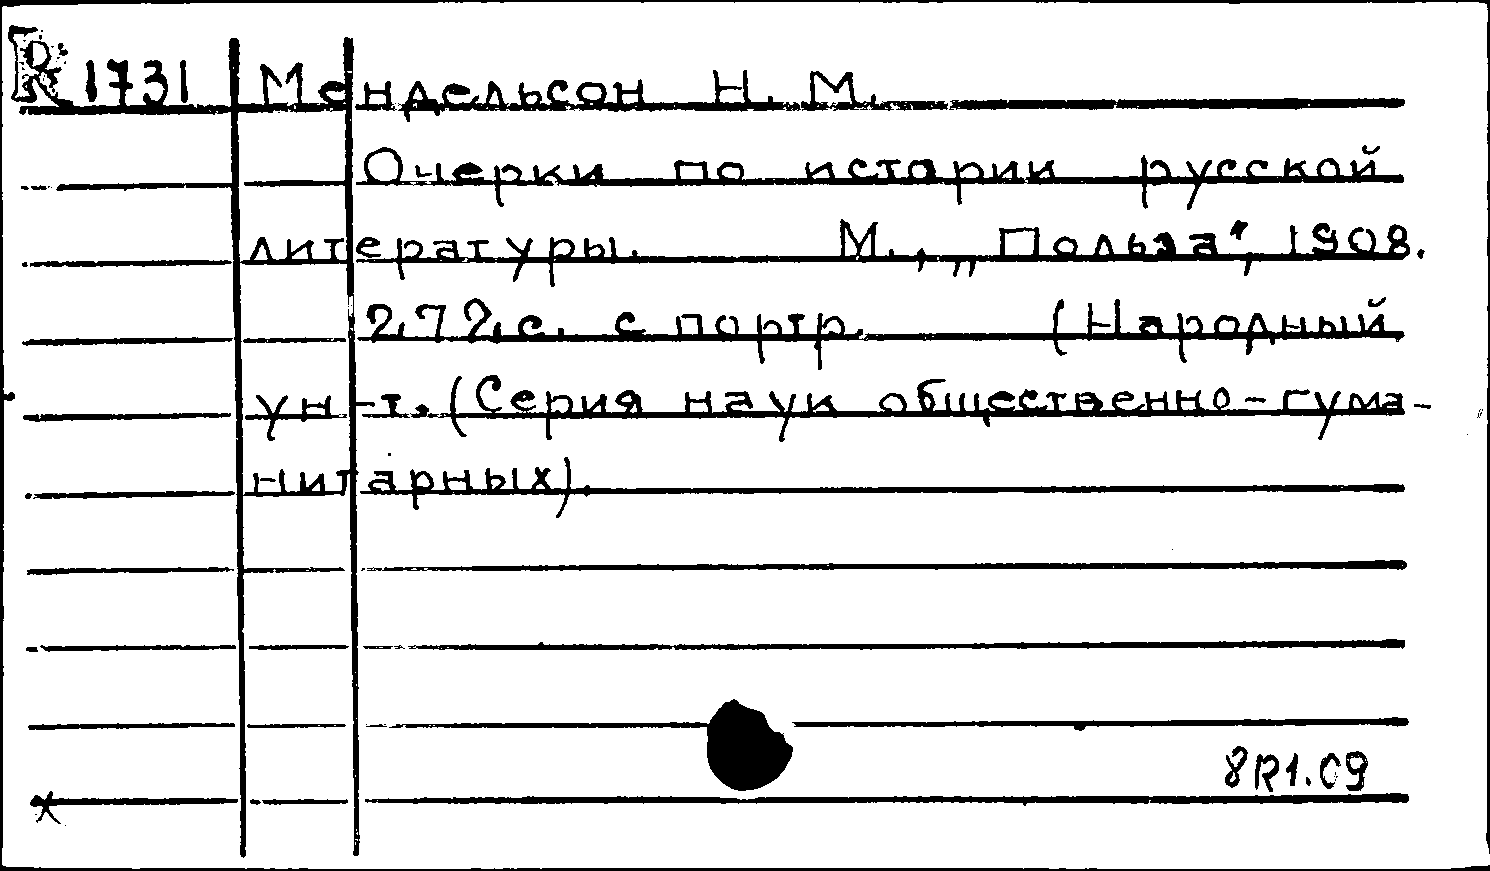 R 1731 Мендельсон Н. М.
Очерки по истории русской
литературы. М., „Польза", 1908.
272 с. с портр. (Народный
ун-т. (Серия наук общественно-гума-
нитарных).
8R1.09